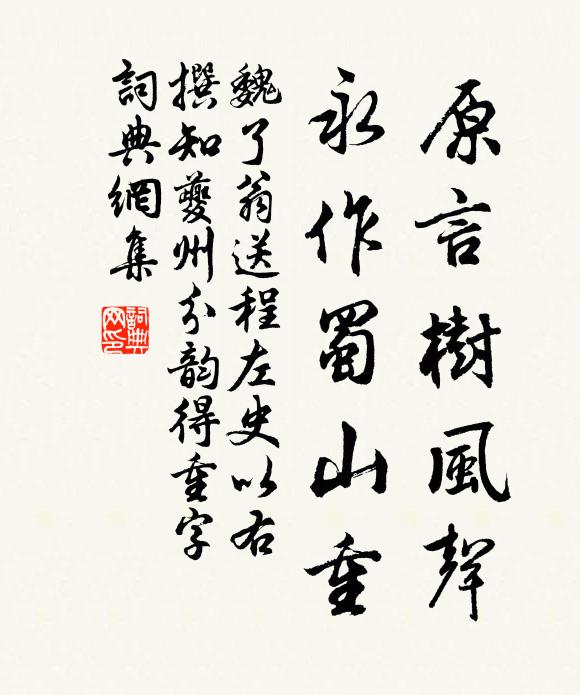 原言樹風聲
永作蜀山重
魏了翁送程左史以右
撰知夔州分韵得重字
詞典網集
詞典
网印